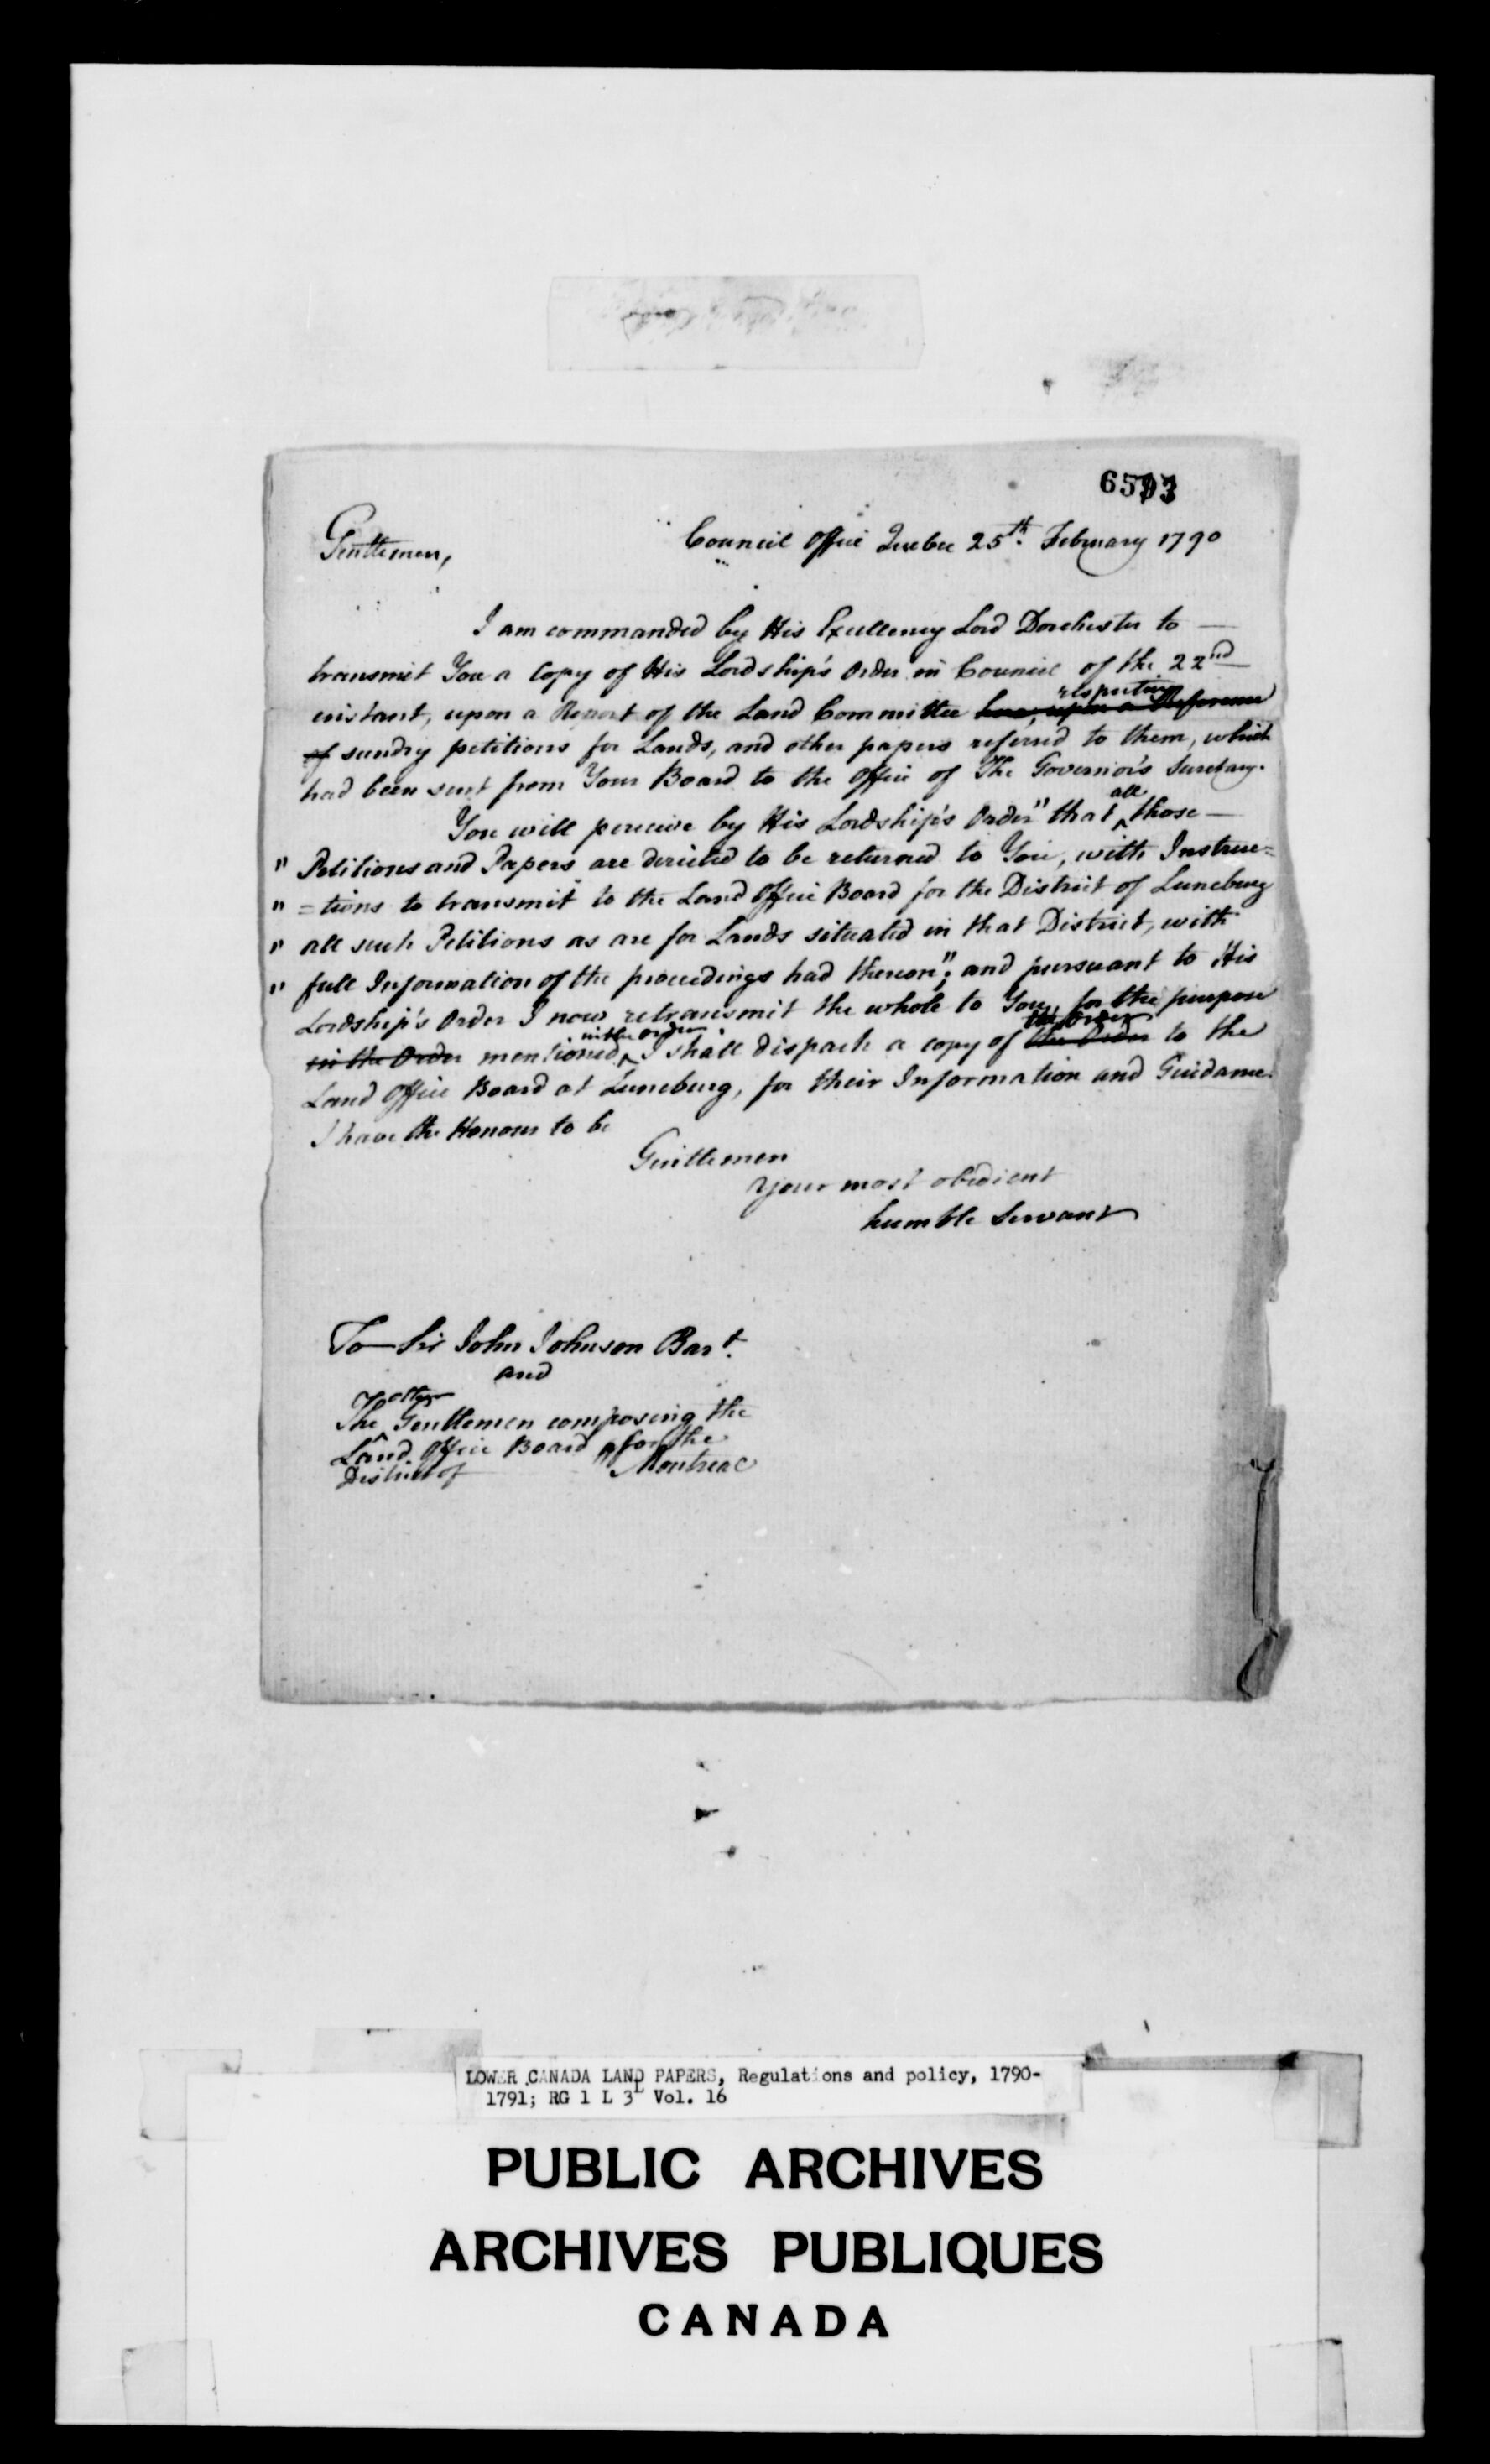 6503
Gentlemen,
Council Office Quebec 25th. February 1790
I am commanded by His Excellency Lord Dorchester to —
transmit You a Copy of His Lordship's Order in Council of the 22nd
instant, upon a Report of the Land Committee here, upon a Reference respecting
of sundry petitions for Lands, and other papers referred to them, which
had been sent from Your Board to the Office of The Governor's Secretary.
You will perceive by His Lordship's Order "that all those —
" Petitions and Papers are directed to be returned to You, with Instruc=
" =tions to transmit to the Land Office Board for the District of Luneburg
" all such Petitions as are for Lands situated in that District, with
" full Information of the proceedings had thereon"; and pursuant to His
Lordship's Order I now retransmit the whole to You, for the purpose
in the Order mentioned in the order. I shall dispach a copy of the Order the Order to the
Land Office Board at Luneburg, for their Information and Guidance.
I have the Honour to be
Gentlemen
Your most obedient
humble Servant
To Sir John Johnson Bart.
and
The other Gentlemen composing the
Land Office Board for the
District of Montreal
LOWER CANADA LAND PAPERS, Regulations and policy, 1790-
1791; RG 1 L 3L Vol. 16
PUBLIC ARCHIVES
ARCHIVES PUBLIQUES
CANADA